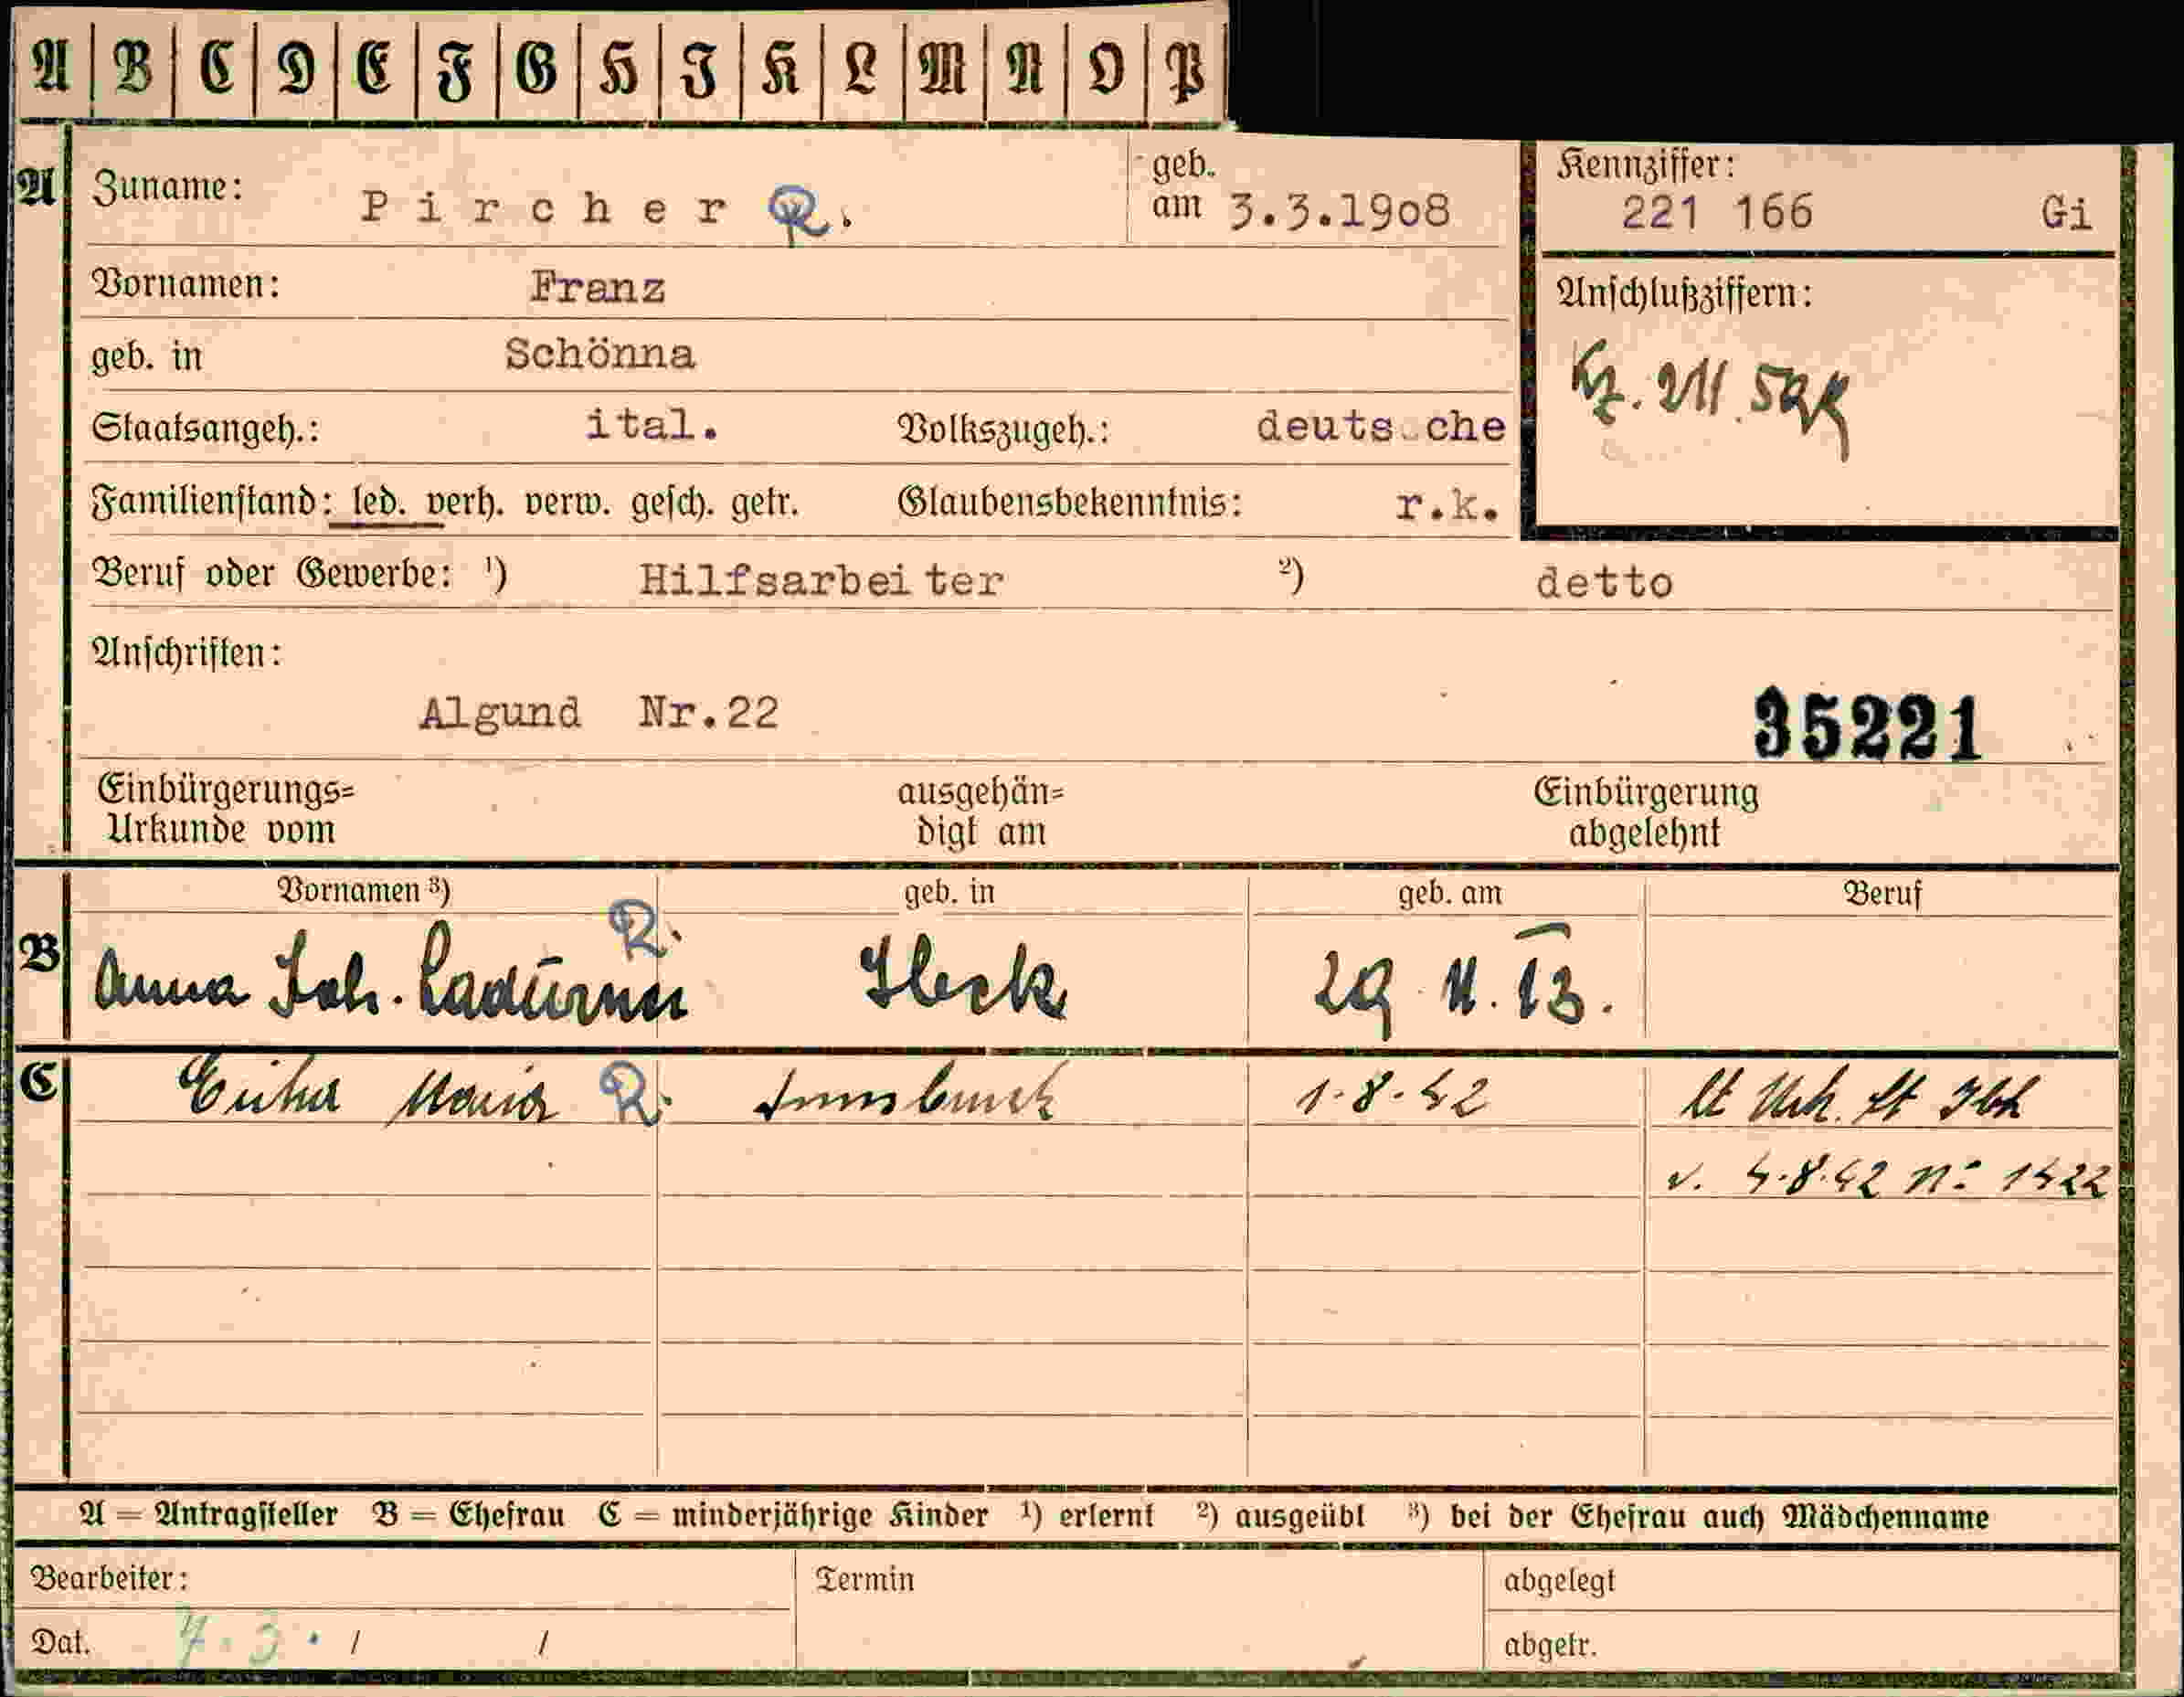 A B C D E F G H I K L M N O P
A Zuname: Pircher R. geb. am 3.3.1908 Kennziffer: 221 166 Gi
Vornamen: Franz Anschlußziffern:
geb. in Schönna Kz. 211.
Staatsangeh.: ital. Volkszugeh.: deutsche
Familienstand: led. verh. verw. gesch. getr. Glaubensbekenntnis: r.k.
Beruf oder Gewerbe: ¹) Hilfsarbeiter ²) detto
Anschriften:
Algund Nr.22 35221
Einbürgerungs= ausgehän= Einbürgerung
Urkunde vom digt am abgelehnt
Vornamen ³) geb. in geb. am Beruf
B Anna Joh. Ladurner R. 13.
C Maria R. Innsbruck 1.8.42 lt Urk. St Ibk
v. 4.8.42 No 1422
A = Antragsteller B = Ehefrau C = minderjährige Kinder ¹) erlernt ²) ausgeübt ³) bei der Ehefrau auch Mädchenname
Bearbeiter: Termin abgelegt
Dat. 7.3. / / abgetr.